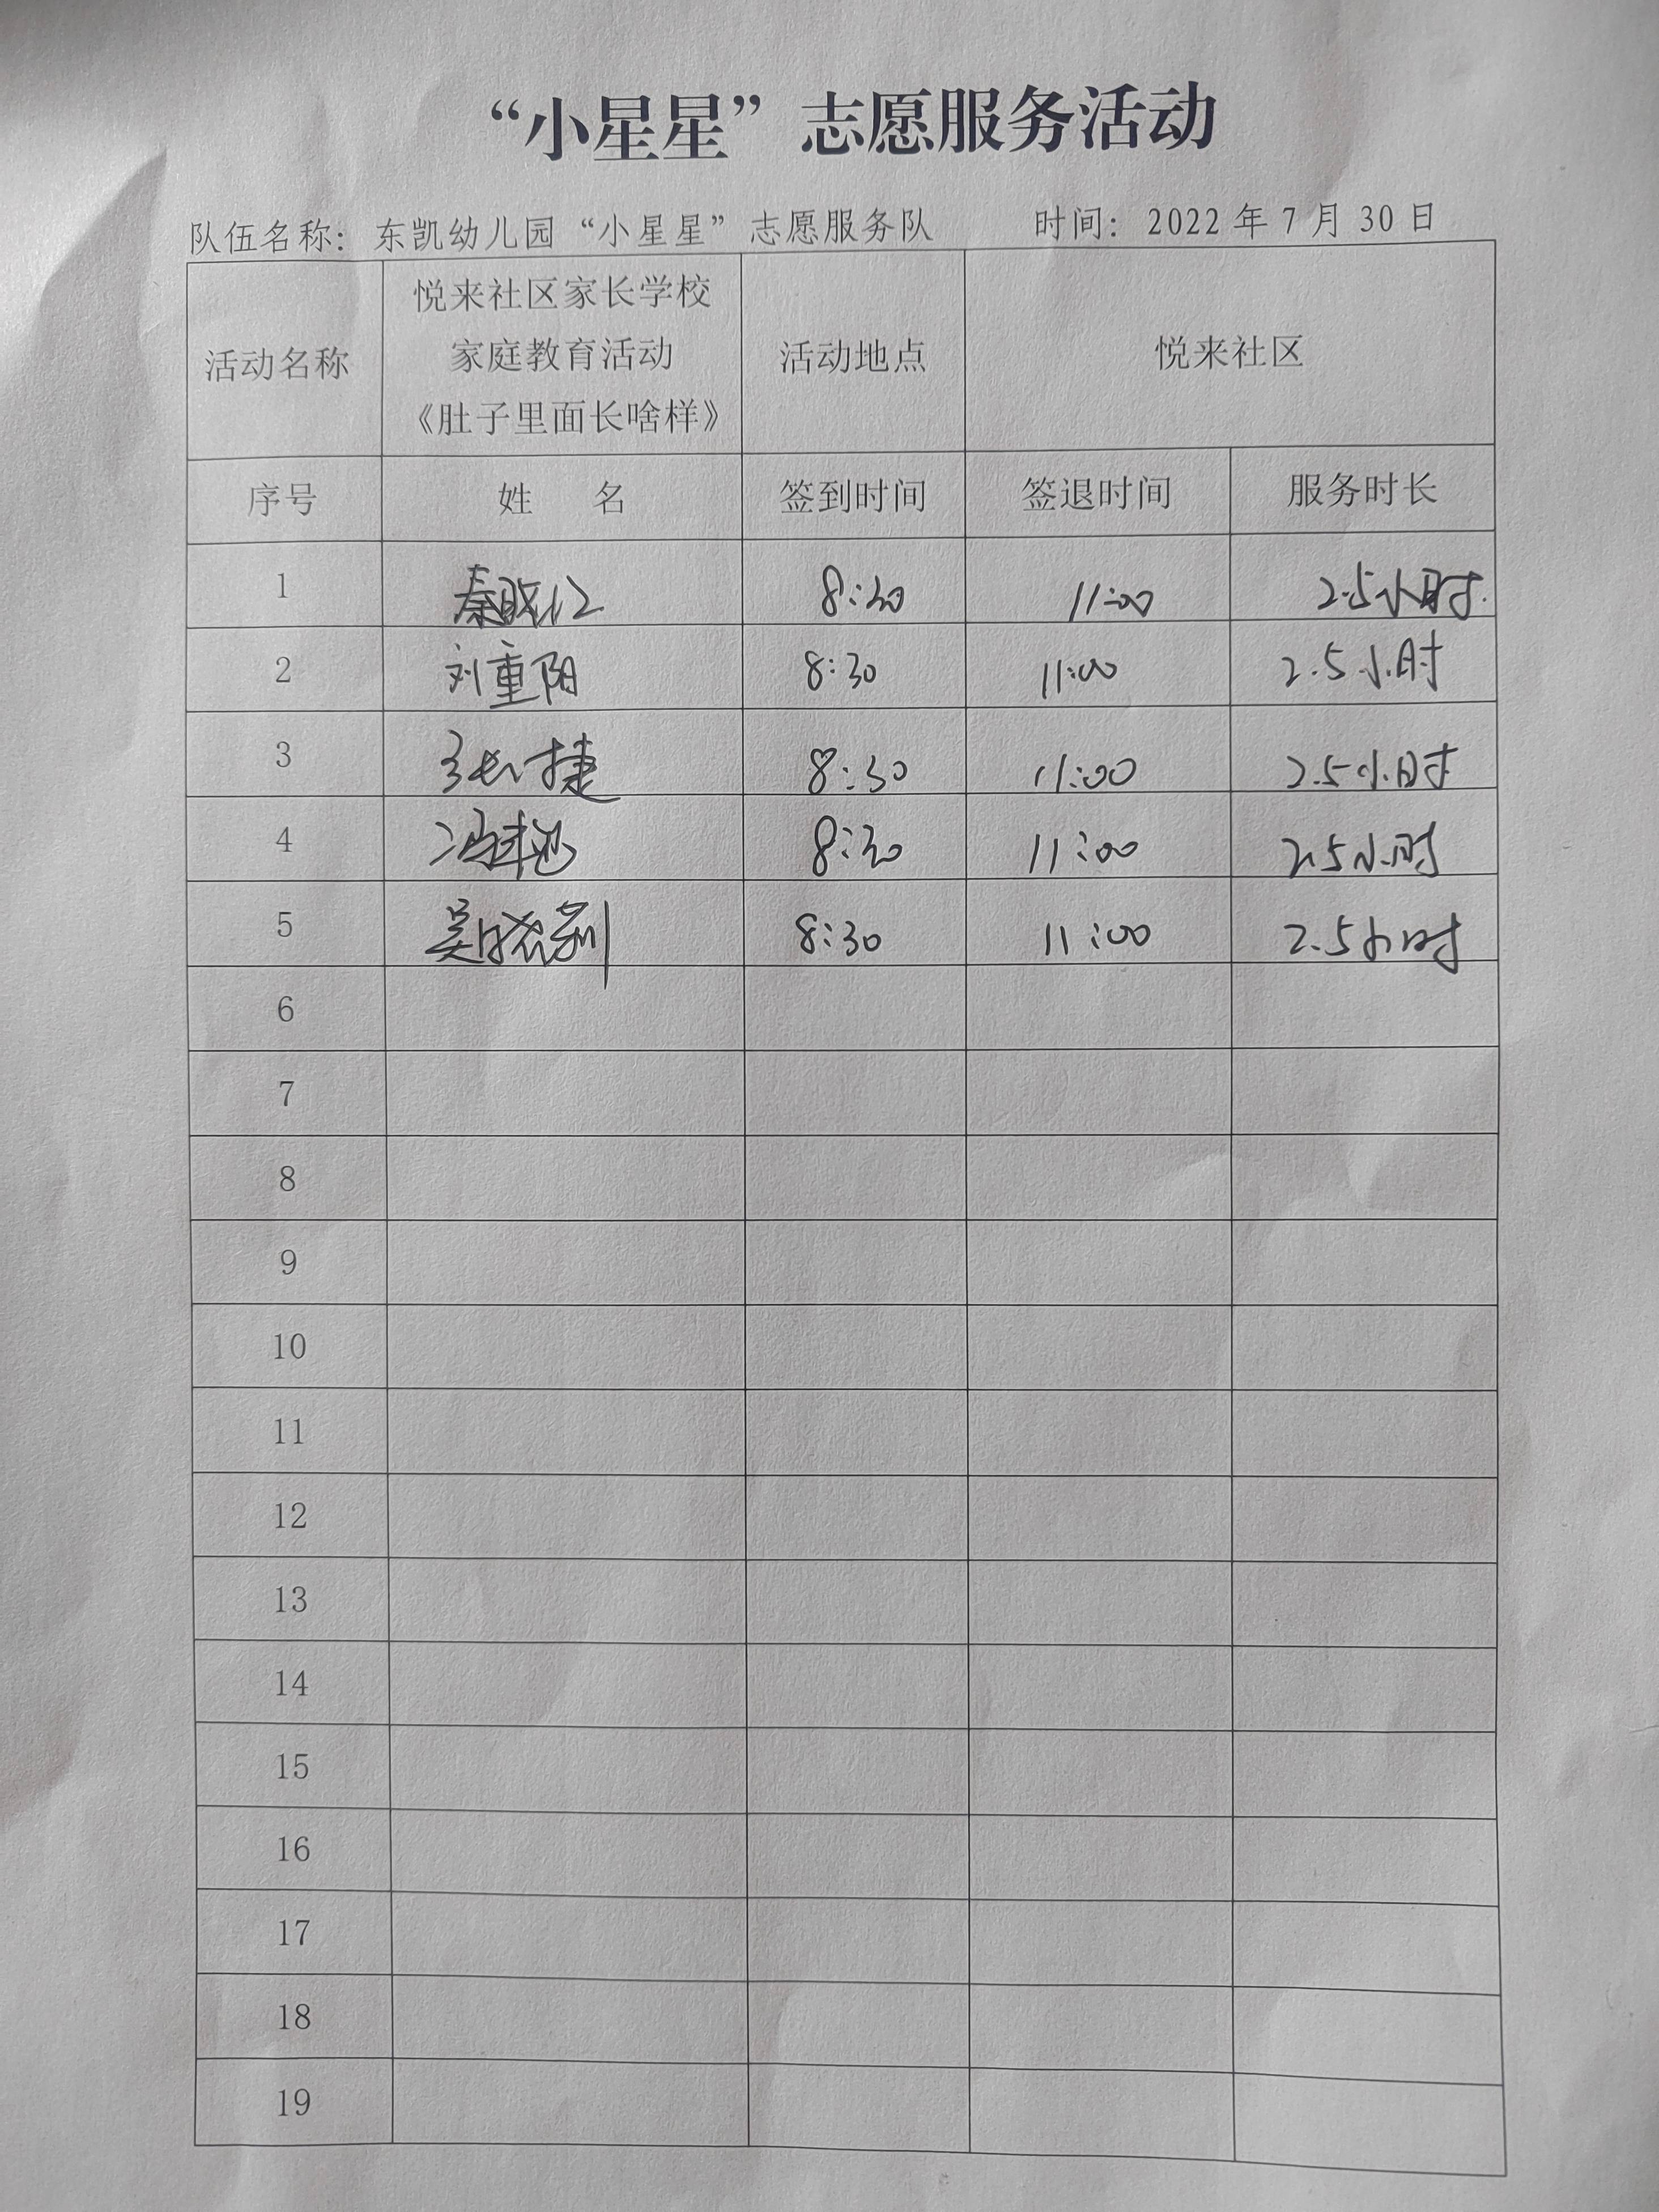 “小星星”志愿服务活动
队伍名称：东凯幼儿园“小星星”志愿服务队 时间：2022年7月30日
活动名称 悦来社区家长学校 活动地点 悦来社区
家庭教育活动
《肚子里面长啥样》
序号 姓 名 签到时间 签退时间 服务时长
1 秦 8:30 11:00 2.5小时.
2 刘重阳 8:30 11:00 2.5小时
3 张捷 8:30 11:00 2.5小时
4 冯 8:30 11:00 2.5小时
5 吴 8:30 11:00 2.5小时
6
7
8
9
10
11
12
13
14
15
16
17
18
19